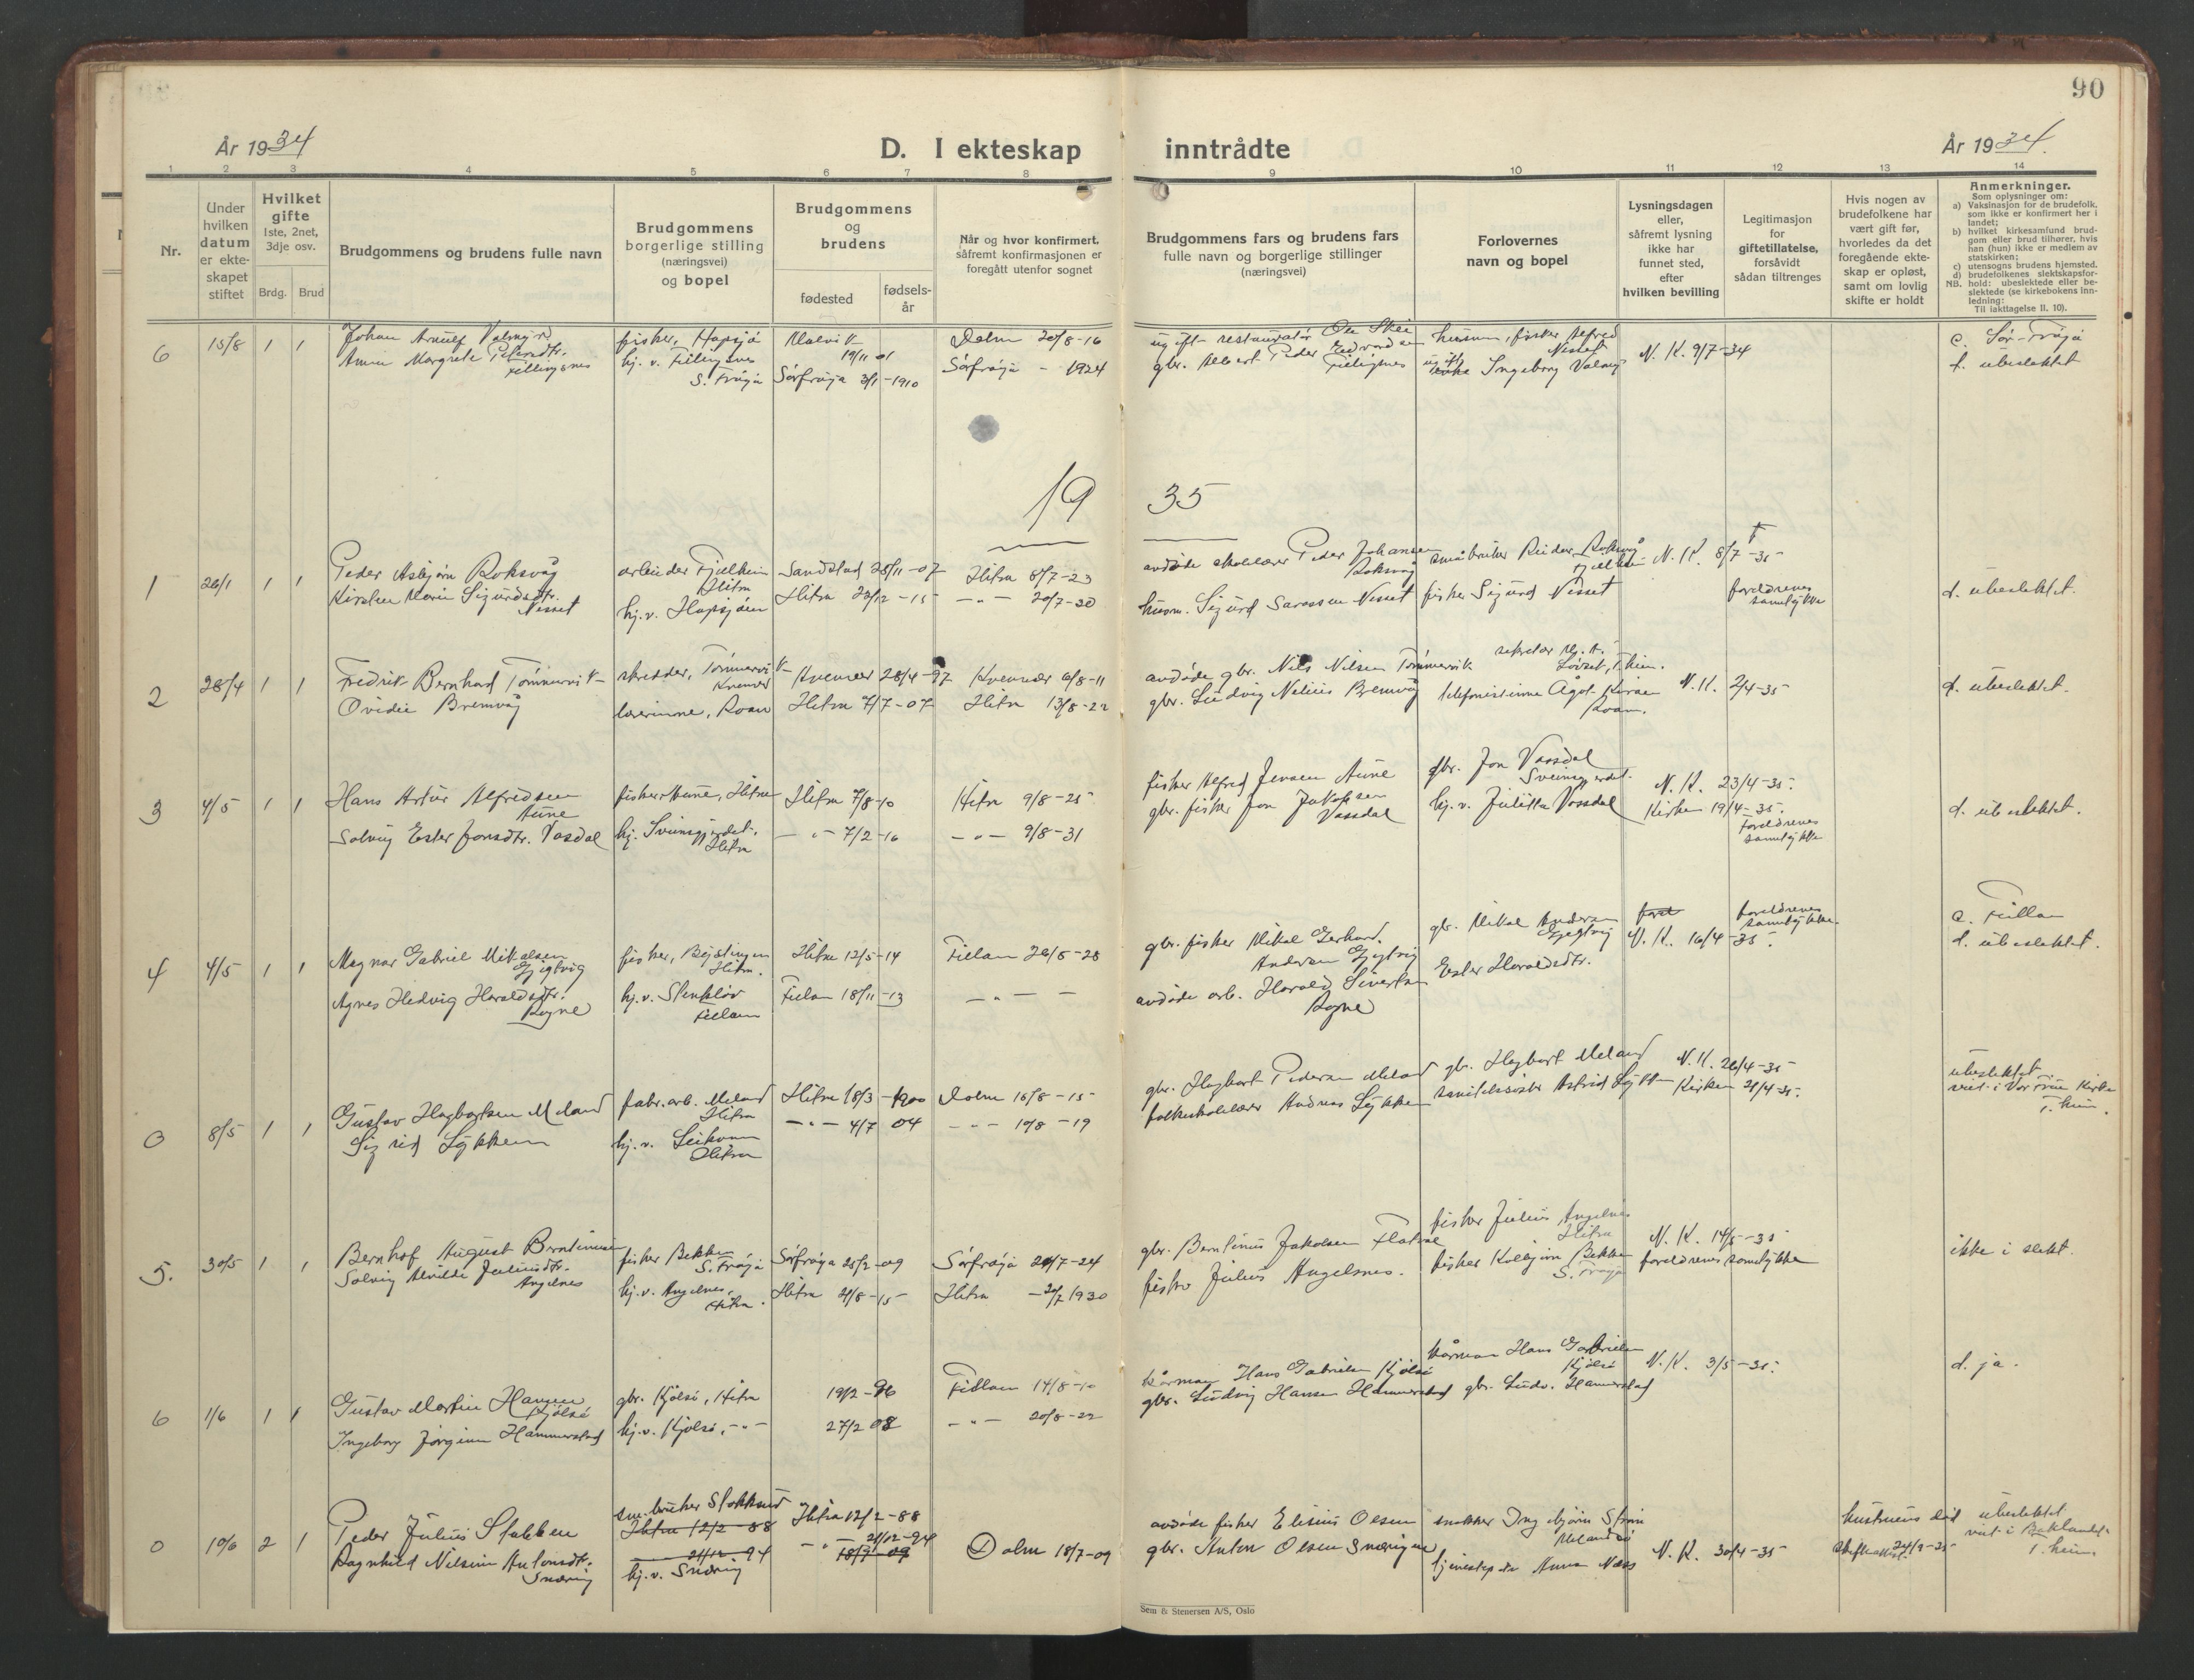 90
År 1934
D. I ekteskap inntrådte
År 1934.
1 2 3 4 5 6 7 8 9 10 11 12 13 14
Nr.
Under
hvilken
datum
er ekte-
skapet
stiftet
Hvilket
gifte
1ste, 2net,
3dje osv.
Brdg. Brud
Brudgommens og brudens fulle navn
Brudgommens
borgerlige stilling
(næringsvei)
og bopel
Brudgommens
og
brudens
fødested
fødsels-
år
Når og hvor konfirmert.
såfremt konfirmasjonen er
foregått utenfor sognet
Brudgommens fars og brudens fars
fulle navn og borgerlige stillinger
(næringsvei)
Forlovernes
navn og bopel
Lysningsdagen
eller,
såfremt lysning
ikke har
funnet sted,
efter
hvilken bevilling
Legitimasjon
for
giftetillatelse,
forsåvidt
sådan tiltrenges
Hvis nogen av
brudefolkene har
vært gift før,
hvorledes da det
foregående ekte-
skap er opløst,
samt om lovlig
skifte er holdt
Anmerkninger.
Som oplysninger om:
a) Vaksinasjon for de brudefolk,
som ikke er konfirmert her i
landet;
b) hvilket kirkesamfund brud-
gom eller brud tilhører, hvis
han (hun) ikke er medlem av
statskirken;
c) utensogns brudens hjemsted.
d) brudefolkenes slektskapsfor-
NB. hold: ubeslektede eller be-
slektede (se kirkebokens inn-
ledning:
Til iakttagelse II. 10).
6 15/8 1 1
Johan Arnulf
Anna Margrete
fisker, Hopsjø
hj. v.
S. Frøya
Malvik
19/11 01
Sørfrøya 3/1-1910
Dolm 20/8-16
Sørfrøya - 1924
ugift restauratør Ole Skei
gbr. Albert Peder
fisker Alfred
Nesset
ugift Ingeborg
N. K. 9/7-34
c. Sør-Frøya
d. ubeslektet
1935
1 26/1 1 1
Peder Asbjørn Roksvåg
Kirsten Marie Sigurdsdtr.
Nesset
arbeider Fjellheim
Hitra
hj. v. Hopsjøen
Sandstad 28/11-07
Hitra 23/12-15
Hitra 8/7-23
-"- 20/7-30
avdøde skolelærer Peder Johansen
Roksvåg
husm. Sigurd Nesset
småbruker Reidar Roksvåg
fisker Sigurd Nesset
N. K. 8/7-35
foreldrenes
samtykke
d. ubeslektet.
2 28/4 1 1
Fredrik Bernhard Tømmervik
Ovidie Bremvåg
skredder, Tømmervik
Kvenvær
lærerinne, Roan
Kvenvær 28/4-97
Hitra 7/7-07
Kvenvær 6/8-11
Hitra 13/8-22
avdøde gbr. Nils Nilsen Tømmervik
gbr. Ludvig Nelius Bremvåg
sekretær
Løvset, T.heim.
telefonistinne Ågot
Roan.
N. K. 2/4-35
d. ubeslektet.
3 4/5 1 1
Hans Artur Alfredsen
Aune
Solveig Ester Jonsdtr. Vasdal
fisker Aune, Hitra
hj. Sveinsgjerdet,
Hitra
Hitra 7/8-10
-"- 7/2-16
Hitra 9/8-25
-"- 9/8-31
fisker Alfred Jensen Aune
gbr. fisker Jon Jakobsen
Vassdal
gbr. Jon Vassdal
Sveinsgjerdet.
hj. v. Julitta Vassdal
N. K. 23/4-35.
Kirken 19/4-35.
foreldrenes
samtykke
d. ubeslektet.
4 4/5 1 1
Magnar Gabriel Mikalsen
Gjegtvig
Agnes Hedvig Haraldsdtr.
Rogne
fisker,
Hitra.
hj. v.
Fillan
Hitra 12/5-14
Fillan 18/11-13
Fillan 26/8-28
-"- -
gbr. fisker Mikal Gerhard
Andersen Gjegtvig
avdøde arb. Harald Sivertsen
Rogne
gbr. Mikal Andersen
Gjegtvig
Ester Haraldsdtr.
N. K. 16/4-35.
foreldrenes
samtykke.
c. Fillan
d. ubeslektet.
0 8/5 1 1
Gustav Hagbartsen Meland
Sigrid Lykken
fabr. arb. Meland
Hitra
hj. v.
Hitra
Hitra 18/3-1900
-"- 4/7 04
Dolm 15/8-15
-"- 10/8-19
gbr. Hagbart Pedersen Meland
folkeskolelærer Andreas Lykken
gbr. Hagbart Meland
Astrid Lykken
N. K. 26/4-35
Kirken 21/4-35.
ubeslektet
viet i Vor Frue Kirke
T.heim.
5. 30/5 1 1
Bernhof August Berntinusen
Solvig Alvilde Juliusdtr.
Angelnes
fisker Bekken
S. Frøya
hj. v. Angelnes,
Hitra.
Sørfrøya 25/2-09
Hitra 21/8-15
Sørfrøya 20/7-24
Hitra -20/7 1930
gbr. Berntinus Jakobsen Flatval
fisker Julius Angelsnes.
fisker Julius Angelnes
Hitra
fisker Kolbjørn Bekken
S. Frøya
N. K. 14/5-35
foreldrenes samtykke
ikke i slekt.
6 1/6 1 1
Gustav Martin Hansen
Kjølsø
Ingeborg Jørgine Hammerstad
gbr. Kjølsø, Hitra
hj. v. Kjølsø, -"-
19/2-96
27/2 08
Fillan 14/8-10
-"- 20/8-22
kårmann Hans Gabrielsen Kjølsø
gbr. Ludvig Hansen Hammerstad
kårmann Hans Gabrielsen
Kjølsø
gbr. Ludv. Hammerstad
N. K. 3/5-35.
d. ja.
0 10/6 2 1
Peder Julius Stakken
Ragnhild Nilsine Antonsdtr.
Snæring
Hitra 12/2-88
21/12-94
hj. v. Snæring
Hitra 12/2-88
-"- 21/12-94
18/7-09
Dolm 18/7-09
avdøde fisker Elisius Olsen
gbr. Anton Olsen Snæringen
snekker Ingebjørn Strøm
Anna Næss
N. K. 30/4-35
hustruens død
24/3-35
ubeslektet
viet i Baklandets
T.heim.
Sem & Stenersen A/S, Oslo